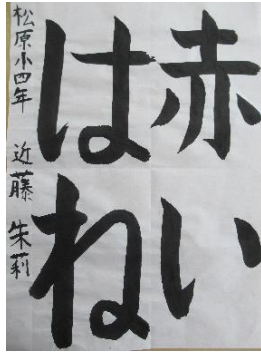 赤い
はね
松原小四年 近藤朱莉